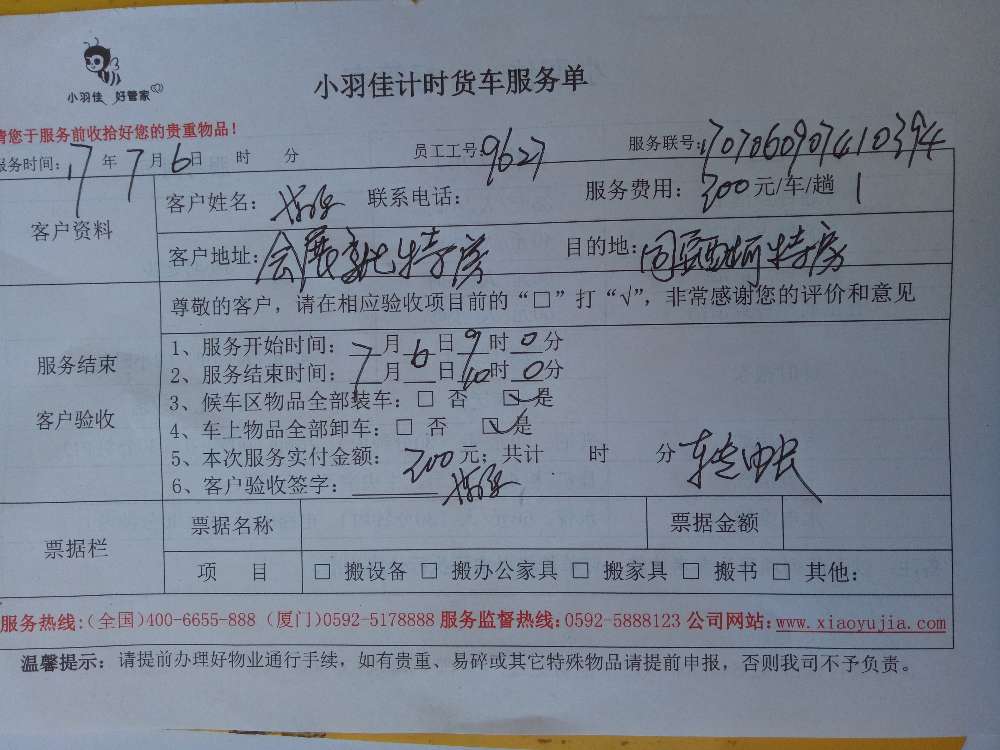 小羽佳 好管家
小羽佳计时货车服务单
请您于服务前收拾好您的贵重物品！
服务时间：17年7月6日 时 分 员工工号：9627 服务联号：170706090741 0394
客户资料
客户姓名： 联系电话： 服务费用：200元/车/趟 1
客户地址：会展 特房 目的地：同 特房
尊敬的客户，请在相应验收项目前的“□”打“√”，非常感谢您的评价和意见
服务结束
客户验收
1、服务开始时间：7月6日9时0分
2、服务结束时间：7月 日10时0分
3、候车区物品全部装车：□ 否 ☑ 是
4、车上物品全部卸车：□ 否 ☑ 是
5、本次服务实付金额：200元；共计 时 分
6、客户验收签字：
票据栏
票据名称 票据金额
项 目 □ 搬设备 □ 搬办公家具 □ 搬家具 □ 搬书 □ 其他：
服务热线：（全国）400-6655-888（厦门）0592-5178888 服务监督热线：0592-5888123 公司网站：www.xiaoyujia.com
温馨提示：请提前办理好物业通行手续，如有贵重、易碎或其它特殊物品请提前申报，否则我司不予负责。